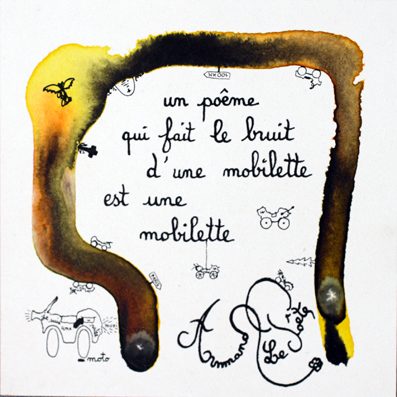 un poême
qui fait le bruit
d'une mobilette
est une
mobilette
moto
Armand
Le Poête